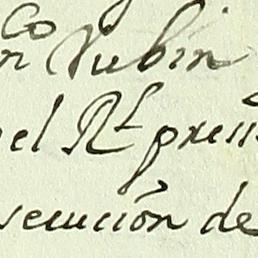 Co
n Rubin
el Rl. presi
secución de